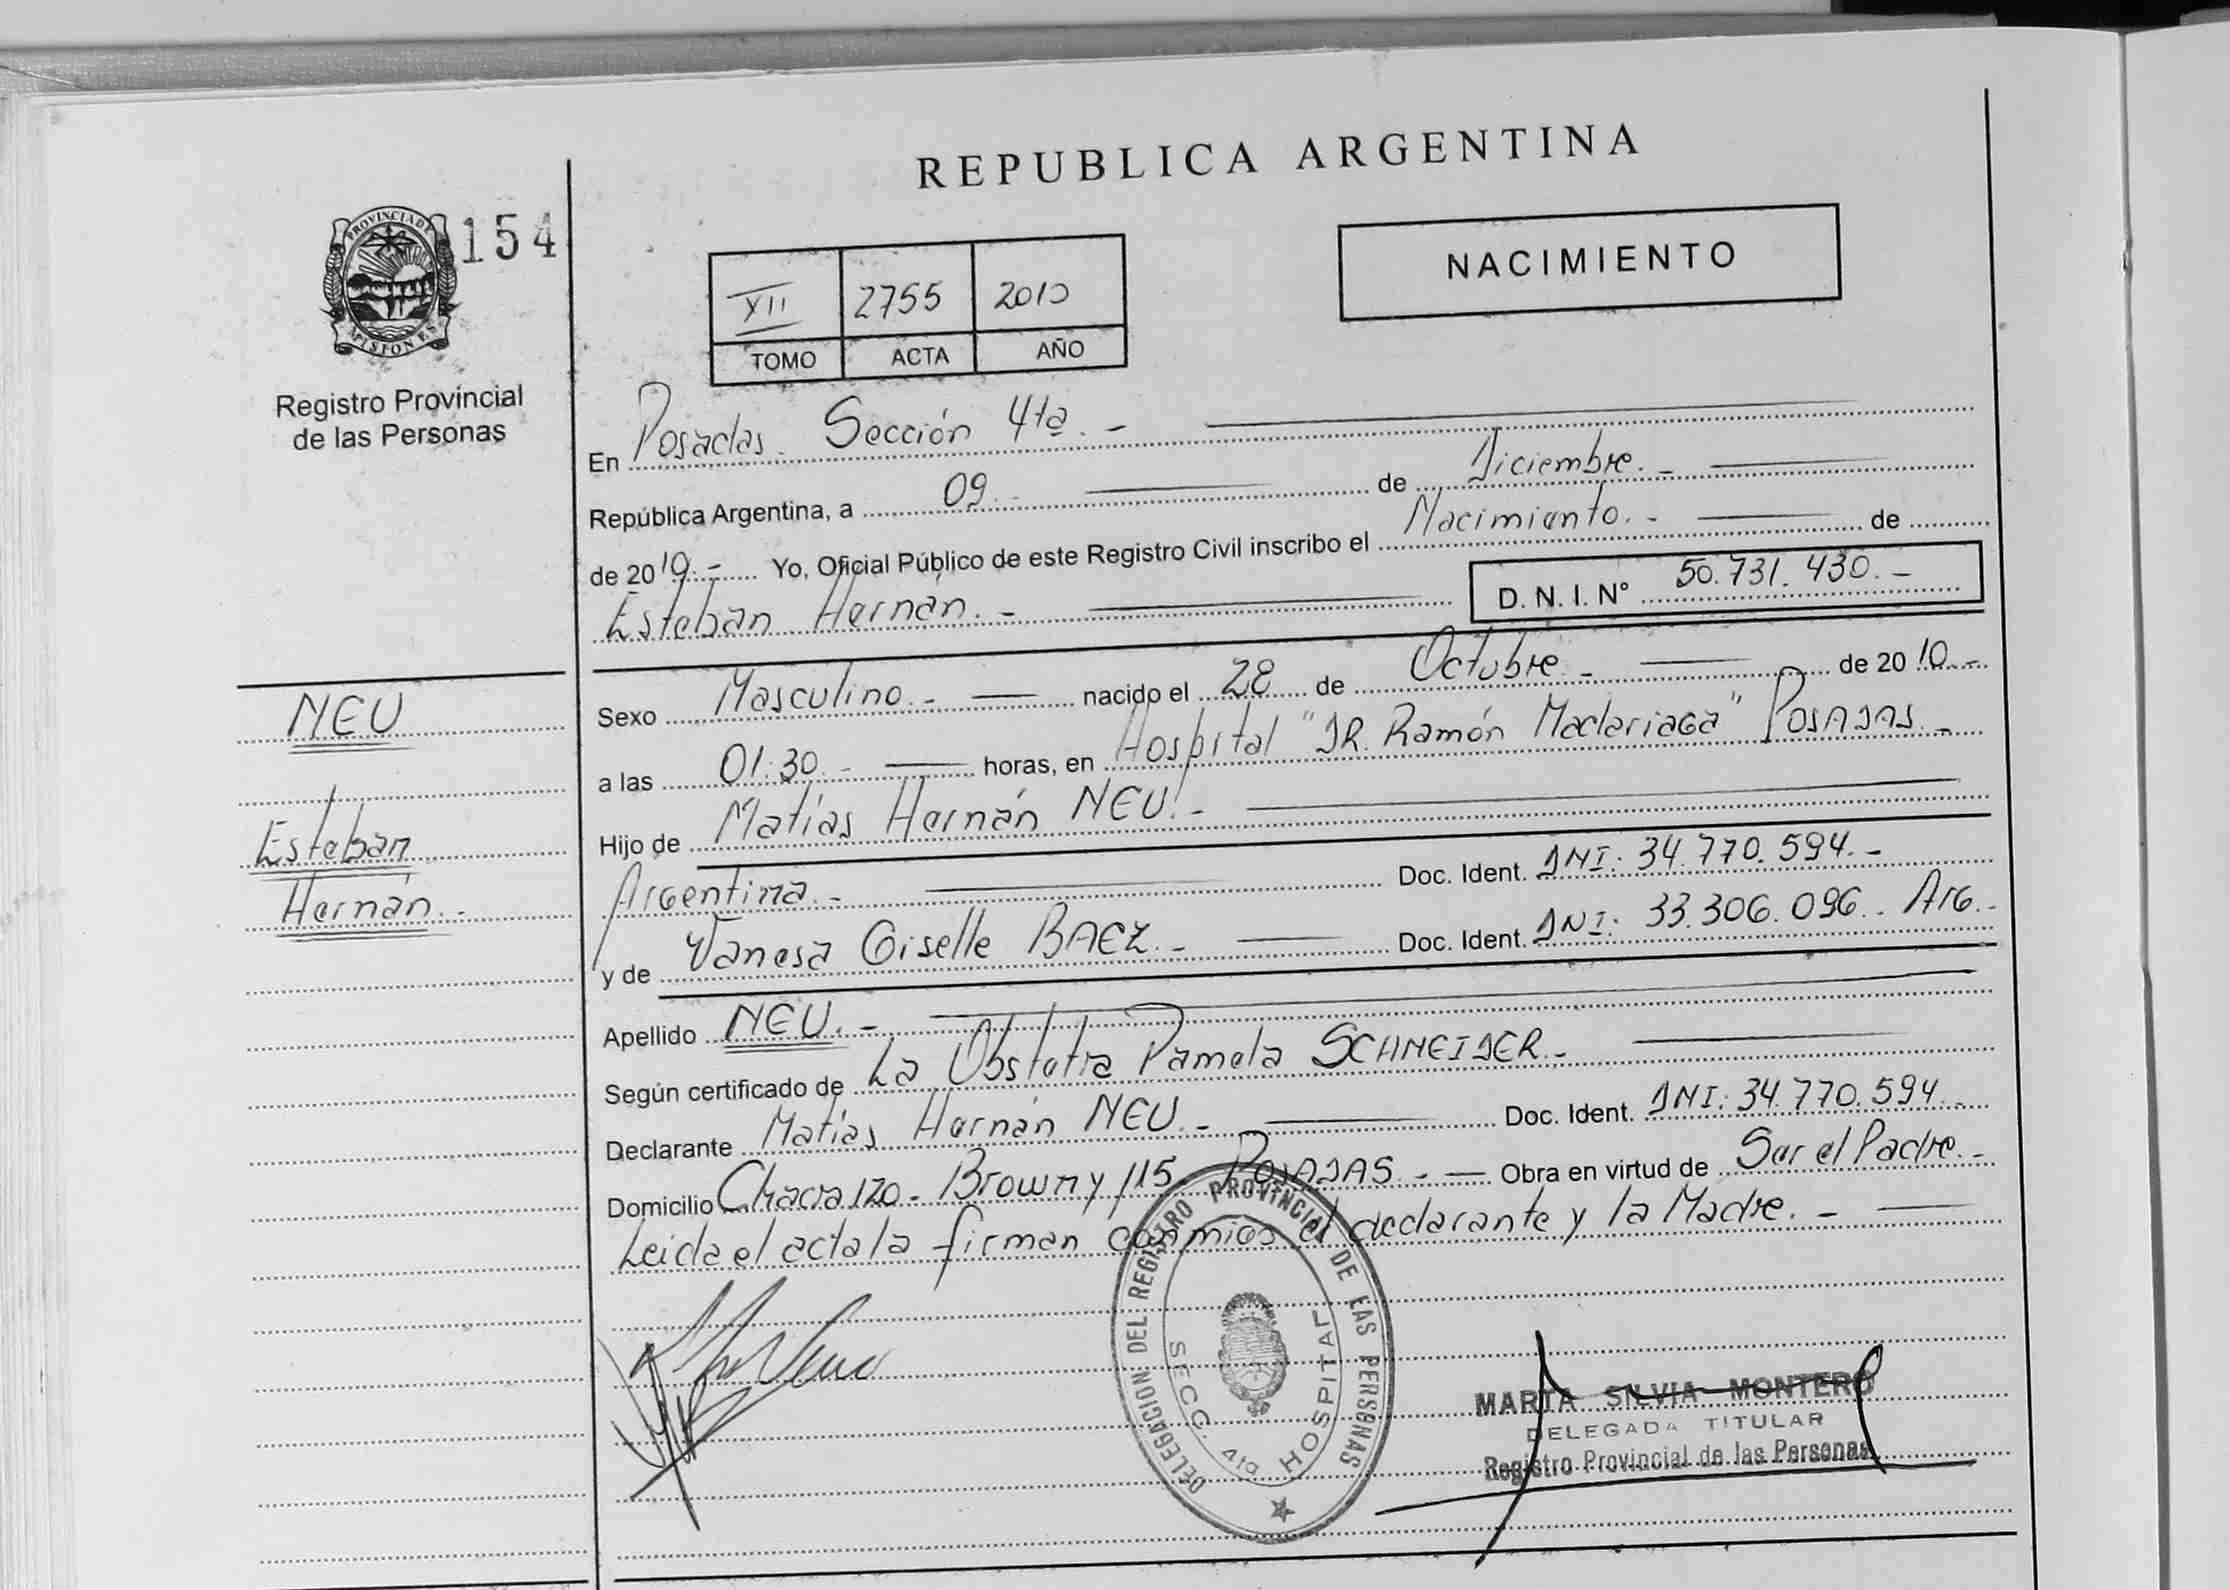 REPUBLICA ARGENTINA
PROVINCIA DE MISIONES
154
Registro Provincial
de las Personas
XII 2755 2010
TOMO ACTA AÑO
NACIMIENTO
En Posadas. Sección 4ta.-
República Argentina, a 09.- de Diciembre.-
de 2010.- Yo, Oficial Público de este Registro Civil inscribo el Nacimiento.- de
Esteban Hernán.- D. N. I. Nº 50.731.430.-
Sexo Masculino.- nacido el 28 de Octubre.- de 2010.-
a las 01:30.- horas, en Hospital "DR. Ramón Madariaga" POSADAS.-
Hijo de Matías Hernán NEU.-
Argentina.- Doc. Ident. DNI: 34.770.594.-
y de Vanesa Giselle BAEZ.- Doc. Ident. DNI: 33.306.096.. Arg.-
Apellido NEU.-
Según certificado de La Obstetra Pamela SCHNEIDER.-
Declarante Matías Hernán NEU.- Doc. Ident. DNI: 34.770.594.-
Domicilio Chacra 120. Brown y 115 POSADAS.- Obra en virtud de Ser el Padre.-
Leida el acta la firman conmigo el declarante y la Madre.-
NEU
Esteban
Hernán.-
DELEGACION DEL REGISTRO PROVINCIAL DE LAS PERSONAS
SECC. 4ta HOSPITAL
MARTA SILVIA MONTERO
DELEGADA TITULAR
Registro Provincial de las Personas